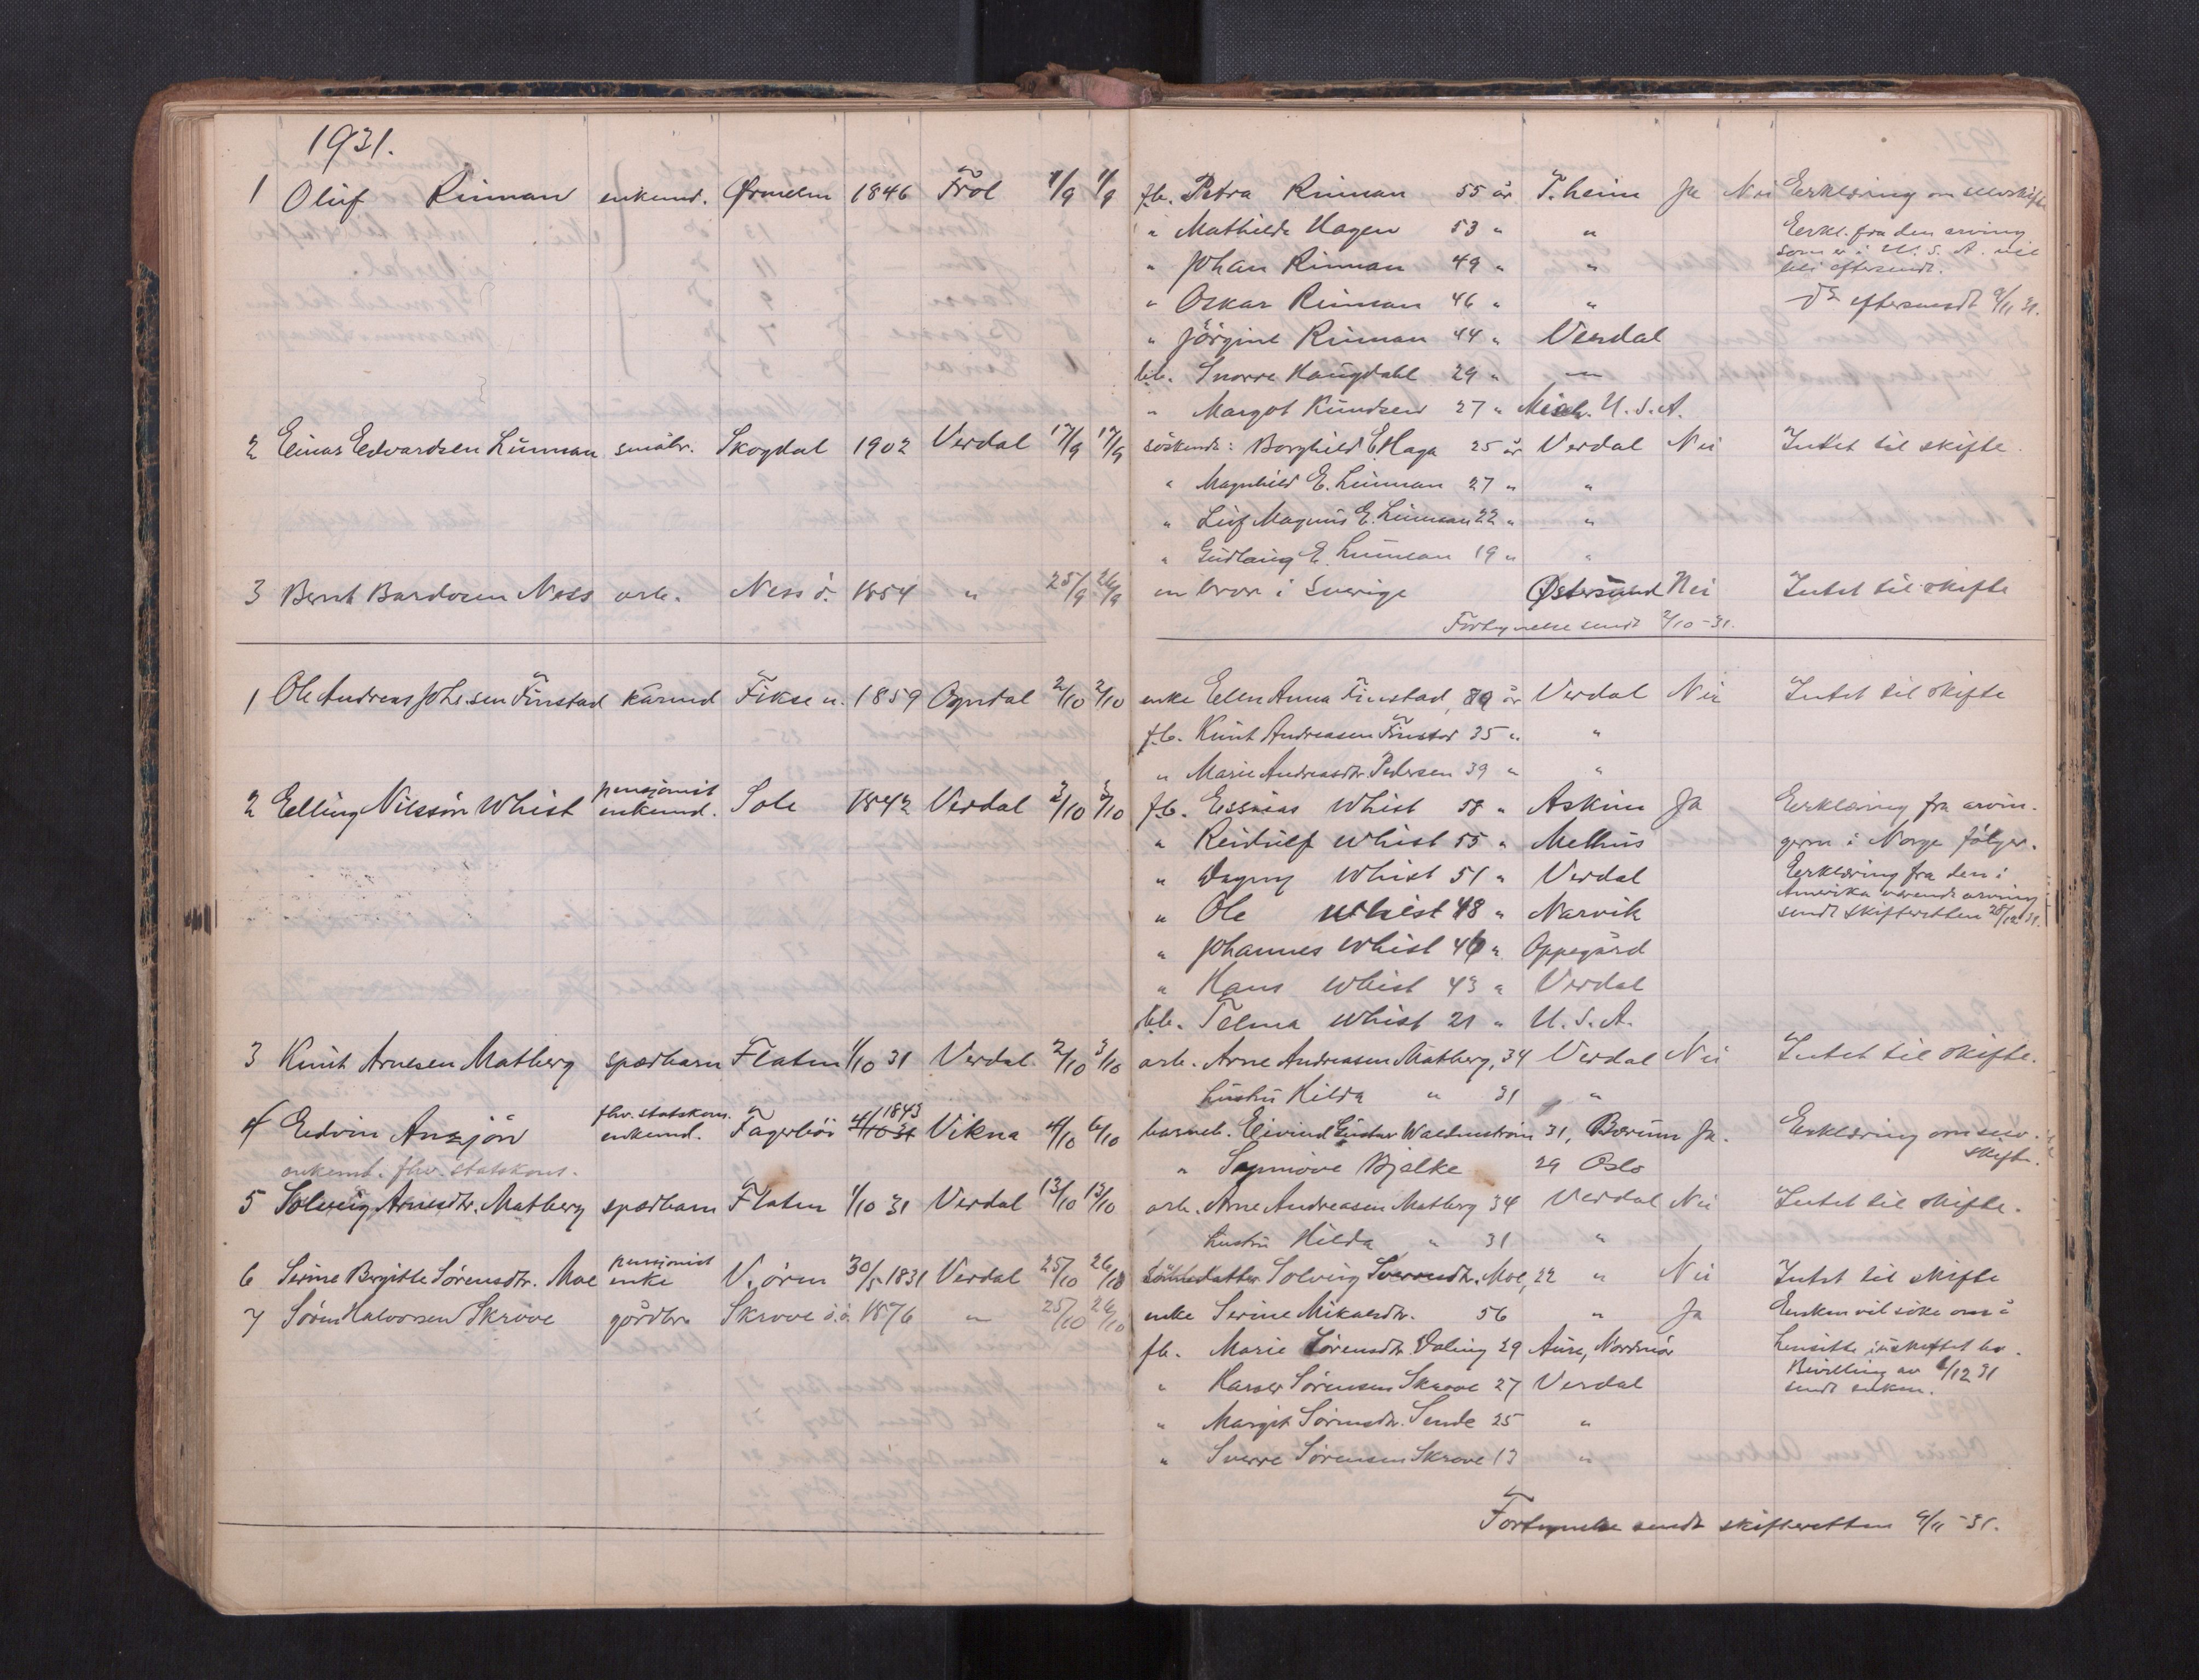 1931.
1 Oluf Rinnan enkemd. Ørmelen 1846 Frol 1/9 1/9 fb. Petra Rinnan 55 år T.heim Ja Nei Erklæring om selvskifte
" Mathilde Hagen 53 " " Erkl. fra den arving
som er i U.S.A. vil
bli eftersendt.
" Johan Rinnan 49 " "
" Oskar Rinnan 46 " " do eftersendt 9/11 31.
" Jörgine Rinnan 44 " Verdal
bb. Snorre Haugdahl 29 " "
" Margot Knudsen 27 " U.S.A.
2 Einar Edvardsen Linman småbr. Skogdal 1902 Verdal 17/9 17/9 söskende: Borghild E. Haga 25 år Verdal Nei Intet til skifte.
" Magnhild E. Linman 27 " "
" Leif Magnus E. Linman 22 " "
" Gudlaug E. Linman 19 " "
3 Bernt Bardosen Ness arb. Ness ö. 1854 " 25/9 26/9 en bror i Sverige Østersund Nei Intet til skifte
Fortegnelse sendt 2/10-31.
1 Ole Andreas Johs.sen Finstad kårmd Fikse n. 1859 Ogndal 2/10 2/10 enke Ellen Anna Finstad, 89 år Verdal Nei Intet til skifte
fb. Knut Andreasen Finstad 35 " "
" Marie Andreasdtr. Pedersen 39 " "
2 Elling Nilssön Whist pensjonist enkemd. Sole 1842 Verdal 3/10 3/10 fb. Essaias Whist 58 " Askim Ja Erklæring fra arvin-
" Reidulf Whist 55 " Melhus gerne i Norge fölger.
" Dagny Whist 51 " Verdal Erklæring fra den i
Amerika værende arving
" Ole Whist 48 " Narvik sendt skifteretten 28/12 31.
" Johannes Whist 46 " Oppegård
" Hans Whist 43 " Verdal
bb. Telma Whist 21 " U.S.A.
3 Knut Arnesen Matberg spædbarn Flaten 1/10 31 Verdal 2/10 3/10 arb. Arne Andreasen Matberg, 34 Verdal Nei Intet til skifte.
hustru Hilda " 31 "
4 Edvin Ansjön fhv. statskons. enkemd. Fagerlöi 1/10 31 1843 Vikna 4/10 6/10 barneb. Eivind Gustav Waldenström 31, Bærum Ja. Erklæring om selv-
skifte.
enkemd. fhv. statskons.
" Synnöve Bjelke 29 Oslo
5 Solveig Arnesdtr. Matberg spædbarn Flaten 1/10 31 Verdal 13/10 13/10 arb. Arne Andreasen Matberg 34 Verdal Nei Intet til skifte.
hustru Hilda " 31 "
6 Serine Bergitte Sörensdtr. Moe pensjonist enke V.ören 30/5 1831 Verdal 25/10 26/10 Sönnedatter Solveig Sverresdtr. Moe, 22 " Nei Intet til skifte
7 Sören Halvorsen Skrove gårdbr. Skrove ö.ö. 1876 " 25/10 26/10 enke Serine Mikalsdtr. 56 " Ja Enken vil söke om å
fb. Marie Sörensdtr. Valing 29 Aure, Nordmör hensitte i uskiftet bo.
" Hassen Sörensen Skrove 27 Verdal Bevilling av /12 31
sendt enken.
" Margit Sörensdtr. Sende 25 "
" Sverre Sörensen Skrove 13 "
Fortegnelse sendt skifteretten 9/11-31.